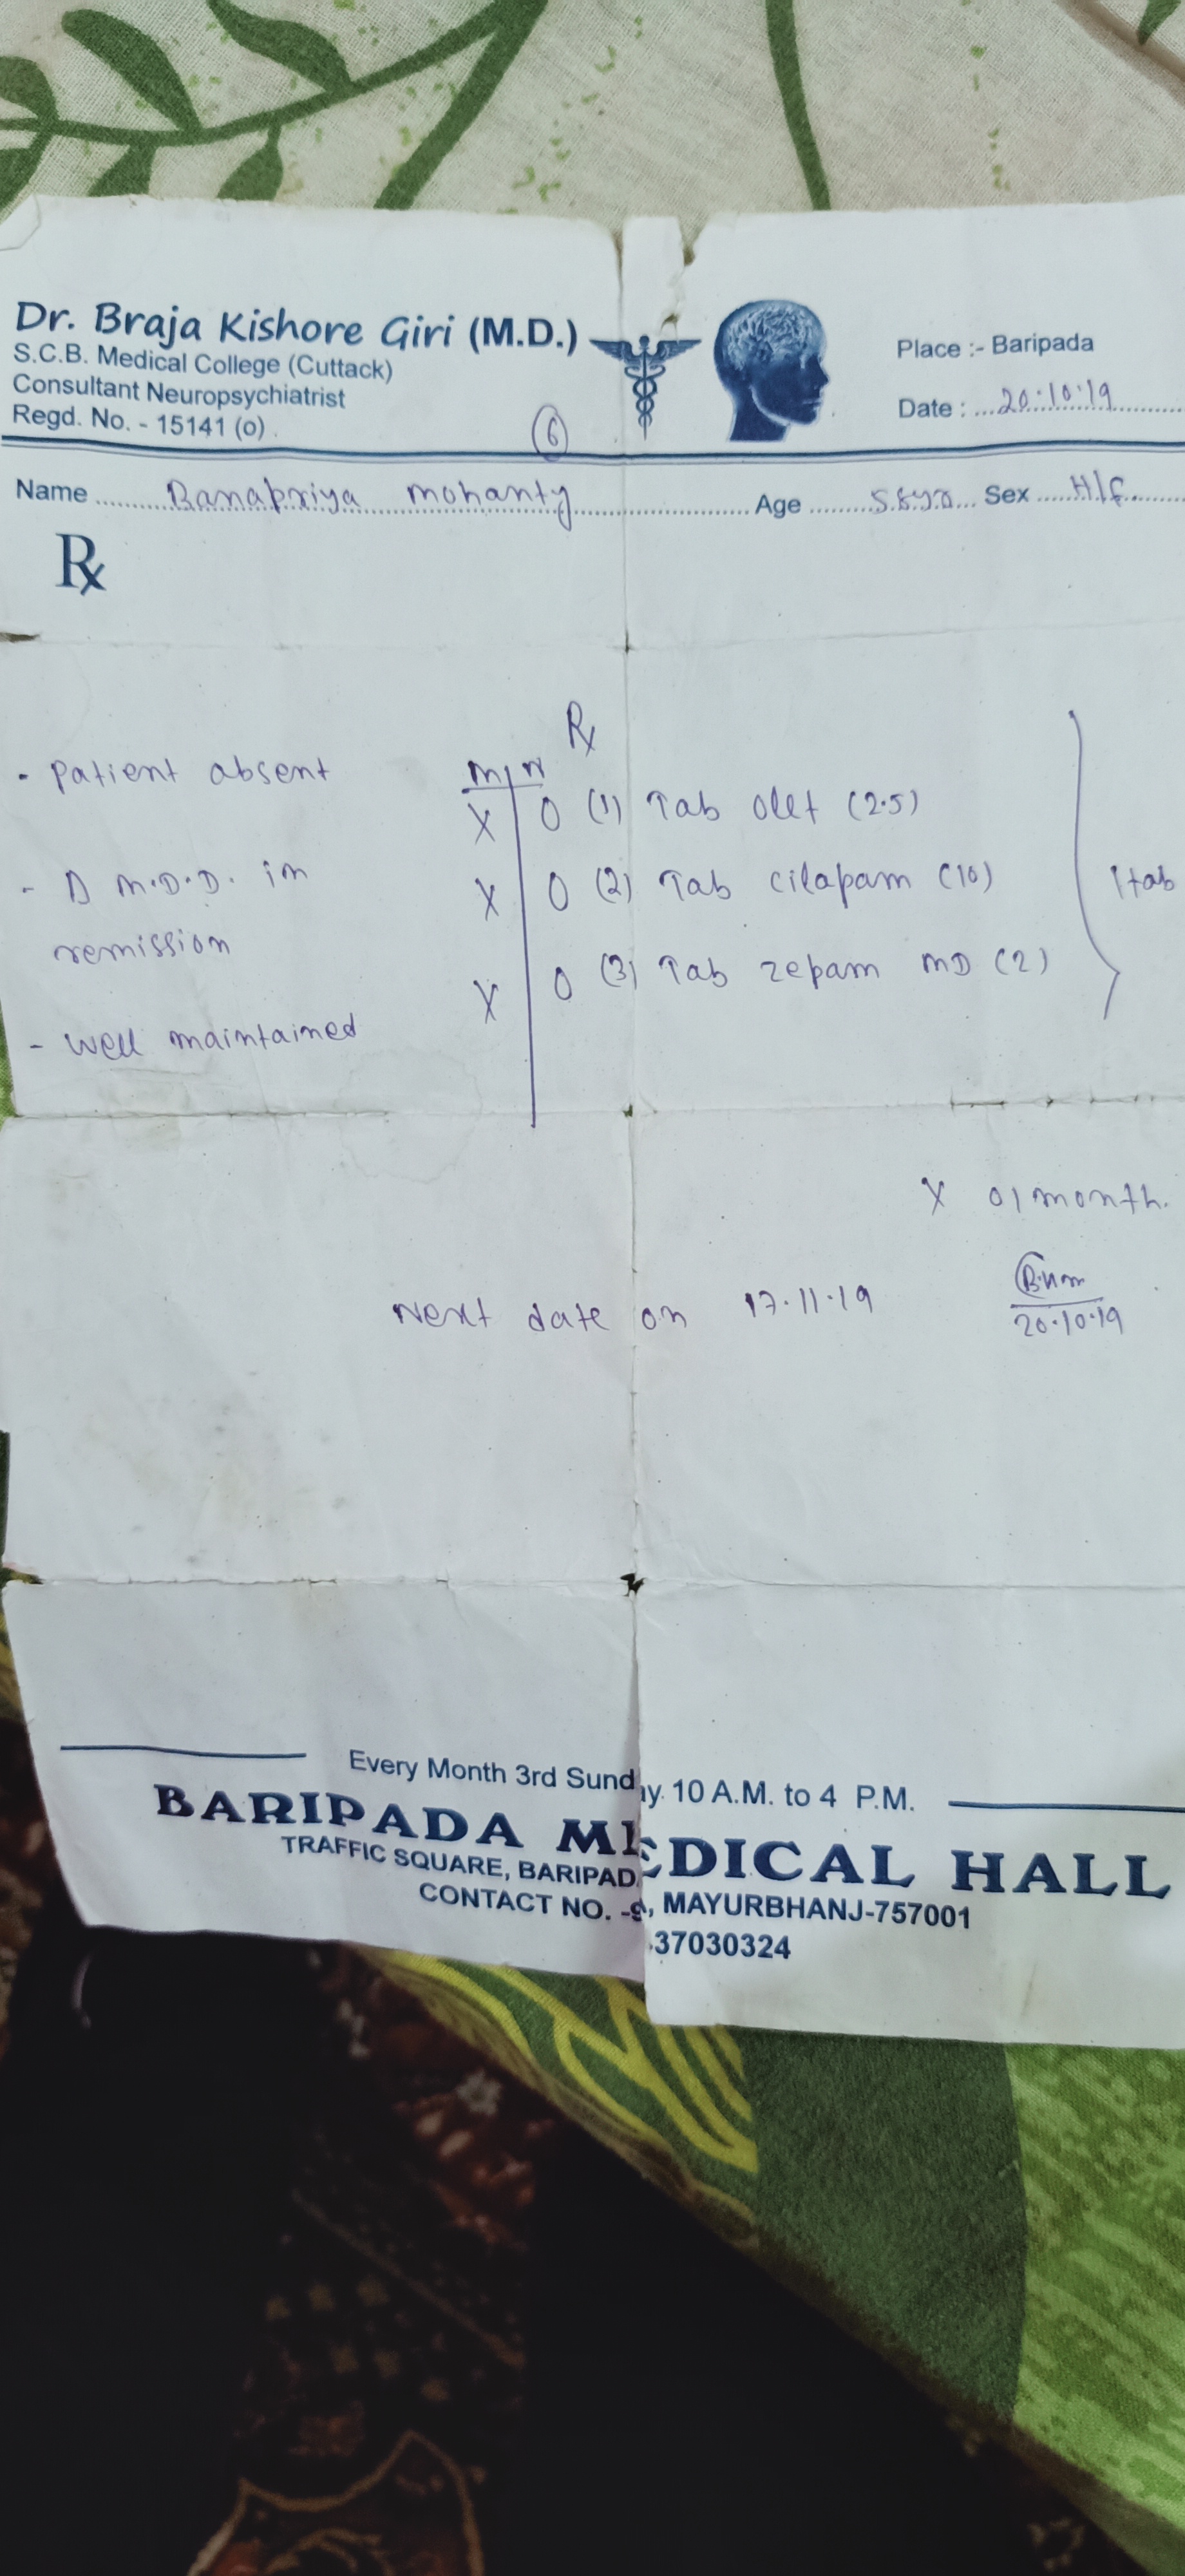 Dr. Braja Kishore Giri (M.D.)
S.C.B. Medical College (Cuttack)
Consultant Neuropsychiatrist
Regd. No. - 15141 (o)
6
Place :- Baripada
Date : ...20.10.19
Name ..... Banapriya mohanty ..... Age ..... Sex .... H/F.
Rx
Rx
- Patient absent
M | N
X | 0 (1) Tab olet (2.5)
- D M.D.D. in
remission
X | 0 (2) Tab cilapam (10)
1 tab
X | 0 (3) Tab zepam MD (2)
- well maintained
X 01 month.
Next date on 17.11.19
20.10.19
Every Month 3rd Sunday 10 A.M. to 4 P.M.
BARIPADA MEDICAL HALL
TRAFFIC SQUARE, BARIPADA, MAYURBHANJ-757001
CONTACT NO. -9 37030324